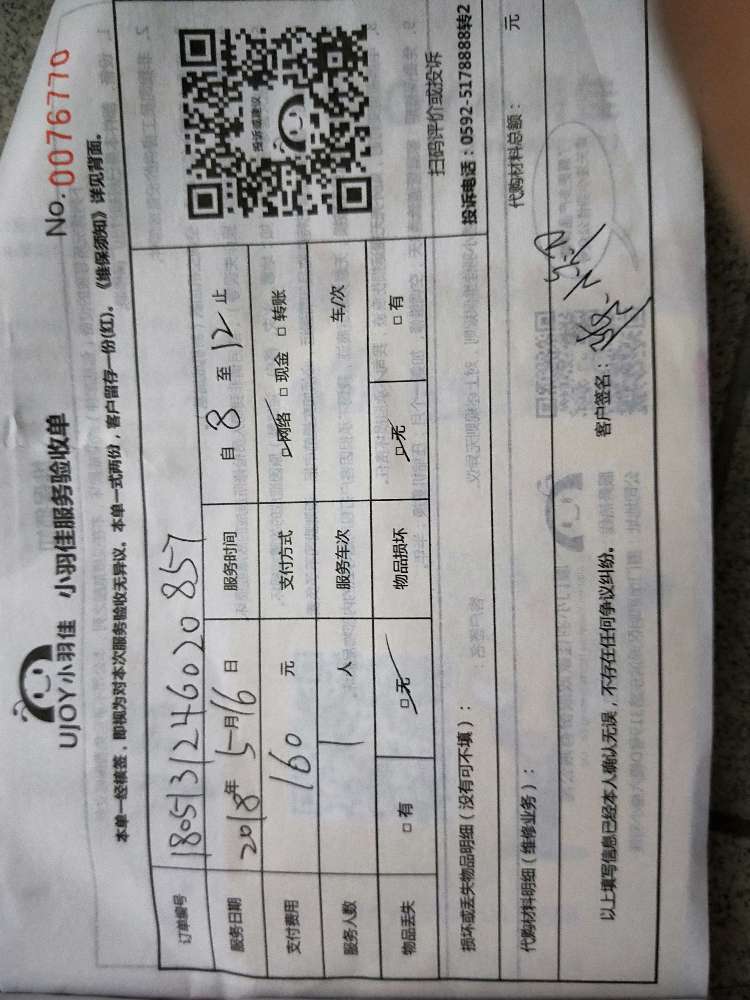 UJOY小羽佳 小羽佳服务验收单
No. 0076770
本单一经核签，即视为对本次服务验收无异议。本单一式两份，客户留存一份(红)。《维保须知》详见背面。
订单编号 1805131246020857
服务日期 2018年5月16日 服务时间 自8至12止
支付费用 160 元 支付方式 网络 现金 转账
服务人数 1 人 服务车次 车/次
物品丢失 有 无 物品损坏 无 有
投诉或建议
扫码评价或投诉
投诉电话：0592-5178888转2
损坏或丢失物品明细（没有可不填）：
代购材料明细（维修业务）： 代购材料总额： 元
以上填写信息已经本人确认无误，不存在任何争议纠纷。 客户签名：